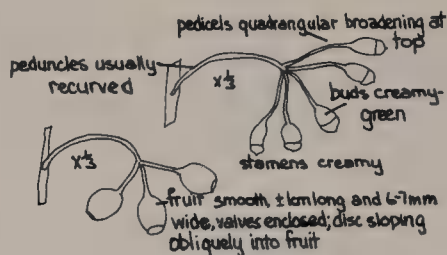 pedicels quadrangular broadening at
top
peduncles usually
recurved
x⅓
buds creamy-
green
stamens creamy
x⅓
fruit smooth, ±1cm long and 6-7mm
wide, valves enclosed; disc sloping
obliquely into fruit